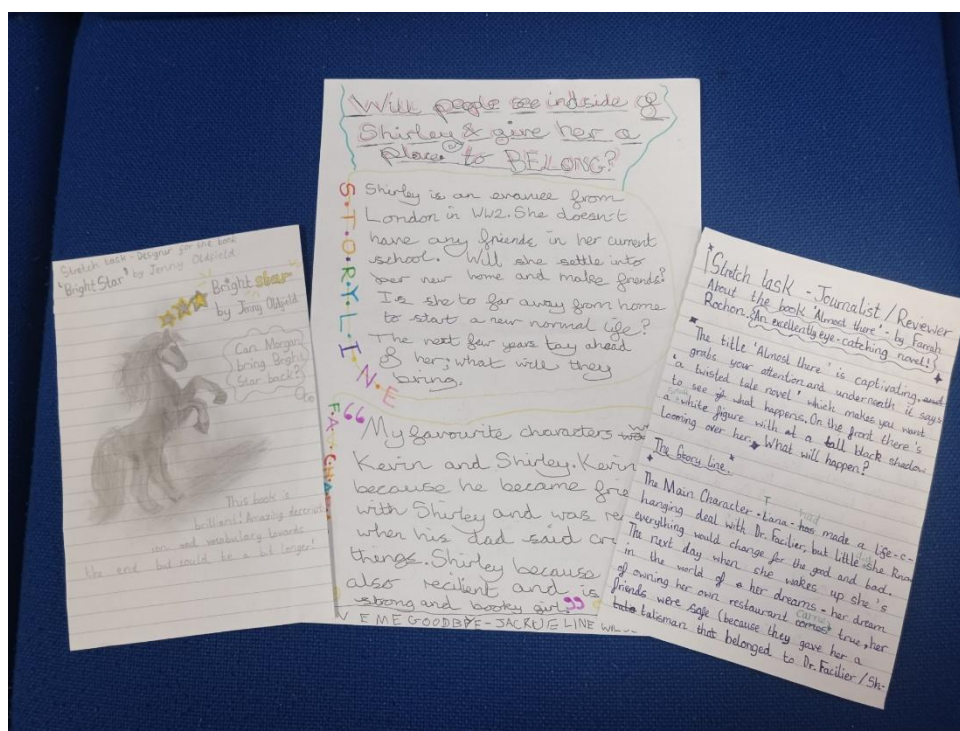 Stretch task - Designer for the book
'Bright Star' by Jenny Oldfield
Bright star
by Jenny Oldfield
Can Morgan
bring Bright
Star back?
This book is
brilliant! Amazing descript
ion and vocabulary towards
the end but could be a bit longer!
Will people see indside of
Shirley & give her a
place to BELONG?
S.T.O.R.Y.L.I.N.E
Shirley is an evacuee from
London in WW2. She doesn't
have any friends in her current
school. Will she settle into
per new home and make friends?
Is she to far away from home
to start a new normal life?
The next few years tay ahead
of her; what will they
bring.
F.A.CHA
"My favourite characters
Kevin and Shirley. Kevin
because he became frie
with Shirley and was re
when his dad said
things. Shirley because
also recilient and is
strong and booky girl."
E ME GOODBYE - JACQUELINE WIL
Stretch task - Journalist / Reviewer
About the book 'Almost there' - by Farrah
Rochon. An excellently eye-catching novel!
The title 'Almost there' is captivating, and
grabs your attention and underneath it says
'a twisted tale novel' which makes you want
to see if what happens. On the front there's
a white figure with at a tall black shadow
looming over her. What will happen?
The Story line.
The Main Character - Tiana - has had made a life-c-
hanging deal with Dr. Facilier, but little did she know
everything would change for the good and bad.
The next day when she wakes up she's
in the world of a her dreams - her dream
of owning her own restaurant came true, her
friends were safe (because they gave her a
talisman that belonged to Dr. Facilier / Sh-